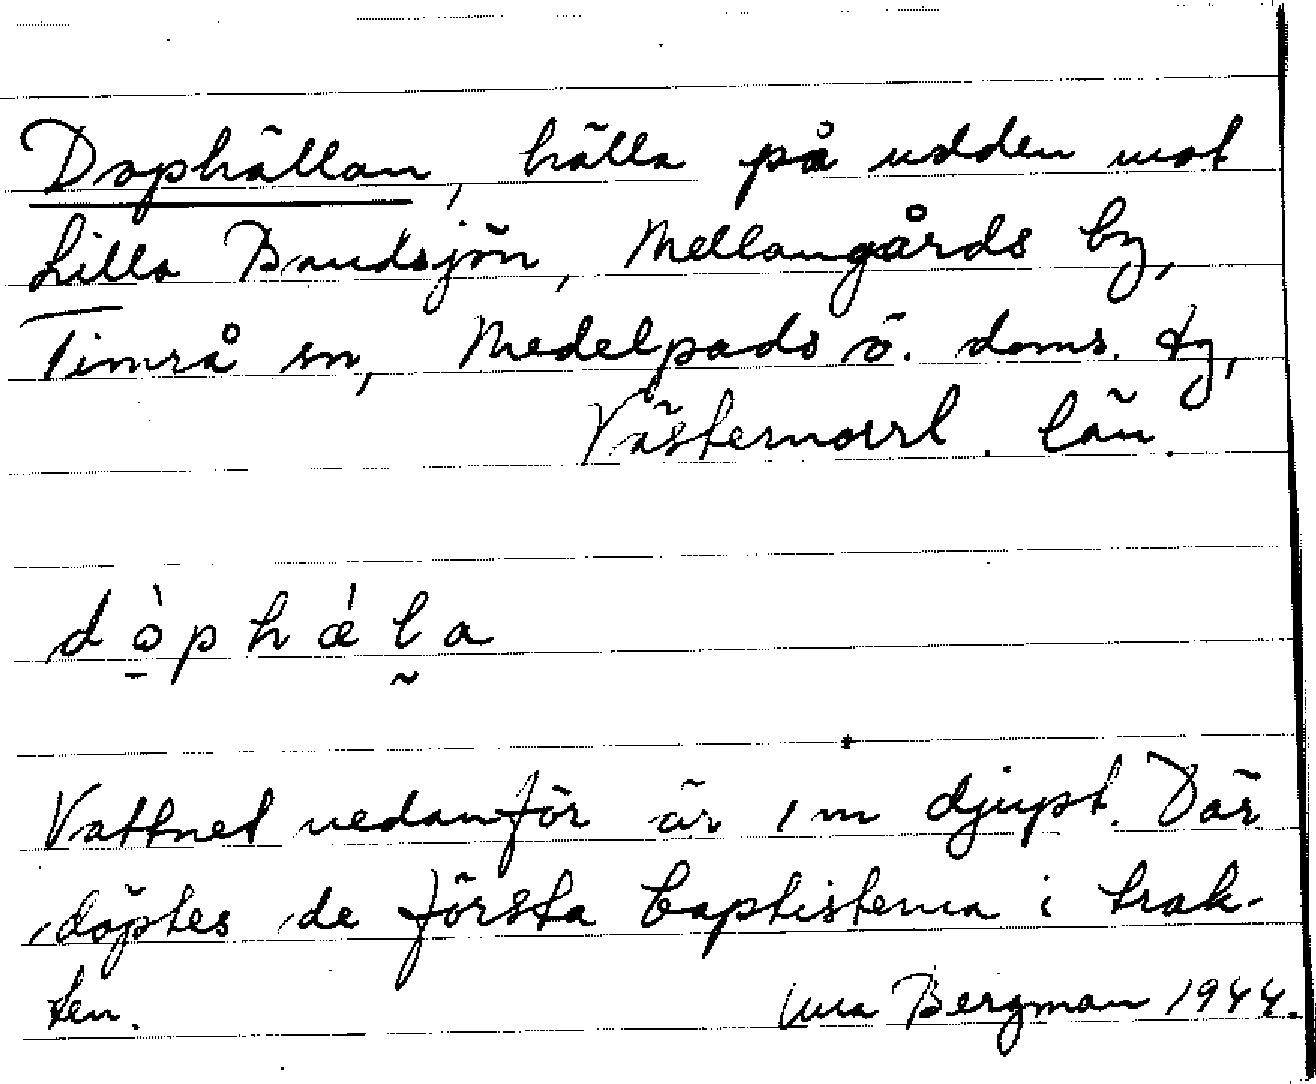 Dophällan, hälla på udden mot
Lilla Bandsjön, Mellangårds by,
Timrå sn, Medelpads ö. doms. tg,
Västernorrl. län.
dòphǽla
Vattnet nedanför är 1 m djupt. Där
döptes de första baptisterna i trak-
ten. Bergman 1944.